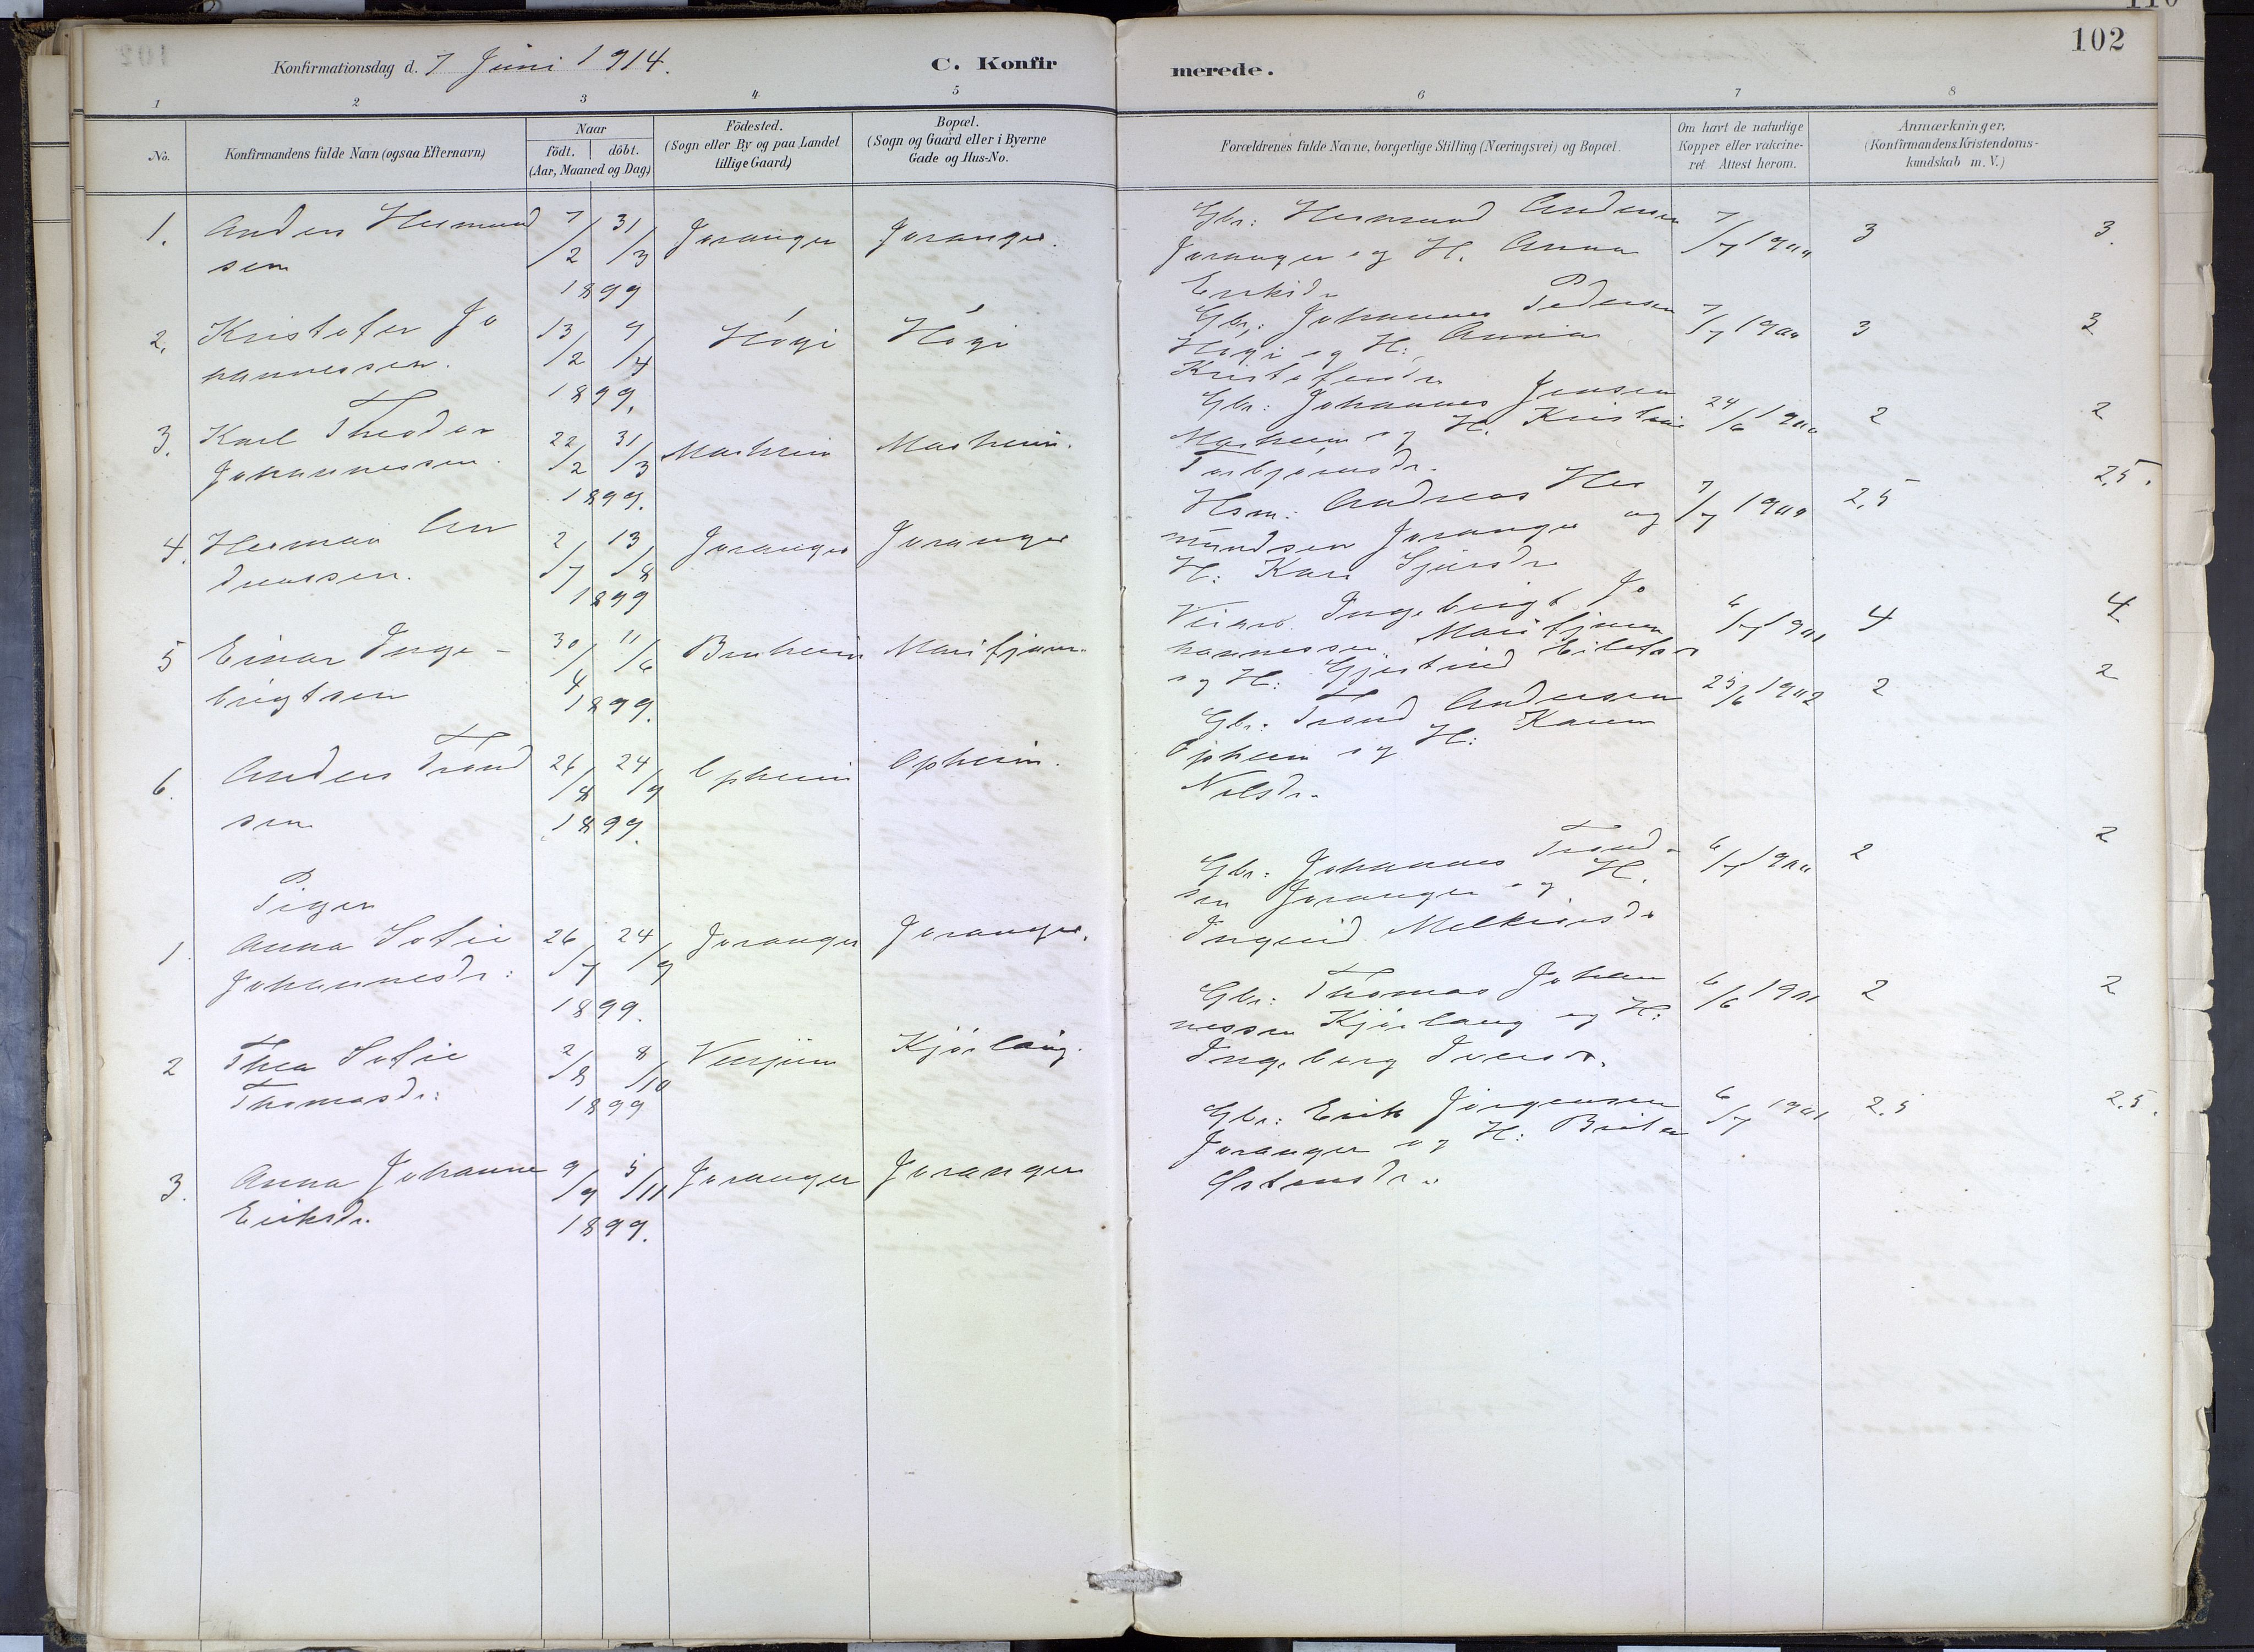 102
Konfirmationsdag d. 7 Juni 1914.
C. Konfir
merede.
1 2 3 4 5 6 7 8
No.
Konfirmandens fulde Navn (ogsaa Efternavn)
Naar
födt. döbt.
(Aar, Maaned og Dag)
Födested.
(Sogn eller By og paa Landet
tillige Gaard)
Bopæl.
(Sogn og Gaard eller i Byerne
Gade og Hus-No.
Forældrenes fulde Navne, borgerlige Stilling (Næringsvei) og Bopæl.
Om havt de naturlige
Kopper eller vakcine-
ret. Attest herom.
Anmærkninger,
(Konfirmandens Kristendoms-
kundskab m. V.)
1. Anders Hermund
sen
7/2 31/3
1899
Joranger Joranger.
Gbr: Hermund Andersen
Joranger og H. Anna
Eriksdr
7/7 1900 3 3.
2. Kristofer Jo
hannessen.
13/2 9/4
1899.
Högi Högi
Gbr: Johannes Pedersen
Högi og H: Anna
Kristofersdr
7/7 1900 3 3
3. Karl Theodor
Johannessen.
22/2 31/3
1899.
Marheim Marheim.
Gbr: Johannes Jensen
Marheim og H. Kristine
Torbjörnsdr.
24/6 1900 2 2
4. Herman An
dreassen.
2/7 13/8
1899
Joranger Joranger
Hsm: Andreas Her
mundsen Joranger og
H: Kari Sjursdr
7/7 1900 2,5 2,5.
5 Einar Inge-
brigtsen
30/4 11/6
1899.
Bruheim Marifjæren.
Ingebrigt Jo
hannessen Marifjæren
og H: Gjertrud
6/7 1901 4 4
6. Anders Trond
sen
26/8 24/9
1899.
Opheim Opheim.
Gbr: Trond Andersen
Opheim og H: Karen
Nilsdr.
25/6 1902 2 2
Piger
1. Anna Sofie
Johannesdr:
26/7 24/9
1899.
Joranger Joranger.
Gbr: Johannes Trond-
sen Joranger og H.
Ingrid Melkiorsdr
6/7 1900 2 2
2 Thea Sofie
Thomasdr:
2/8 8/10
1899
Kjörlaug.
Gbr: Thomas Johan
nessen Kjörlaug og H:
Ingeborg Iversdr.
6/6 1901 2 2
3. Anna Johanne
Eriksdr.
9/9 5/11
1899.
Joranger Joranger
Gbr: Erik Jörgensen
Joranger og H: Brita
Ostensdr.
6/7 1901 2,5 2,5.